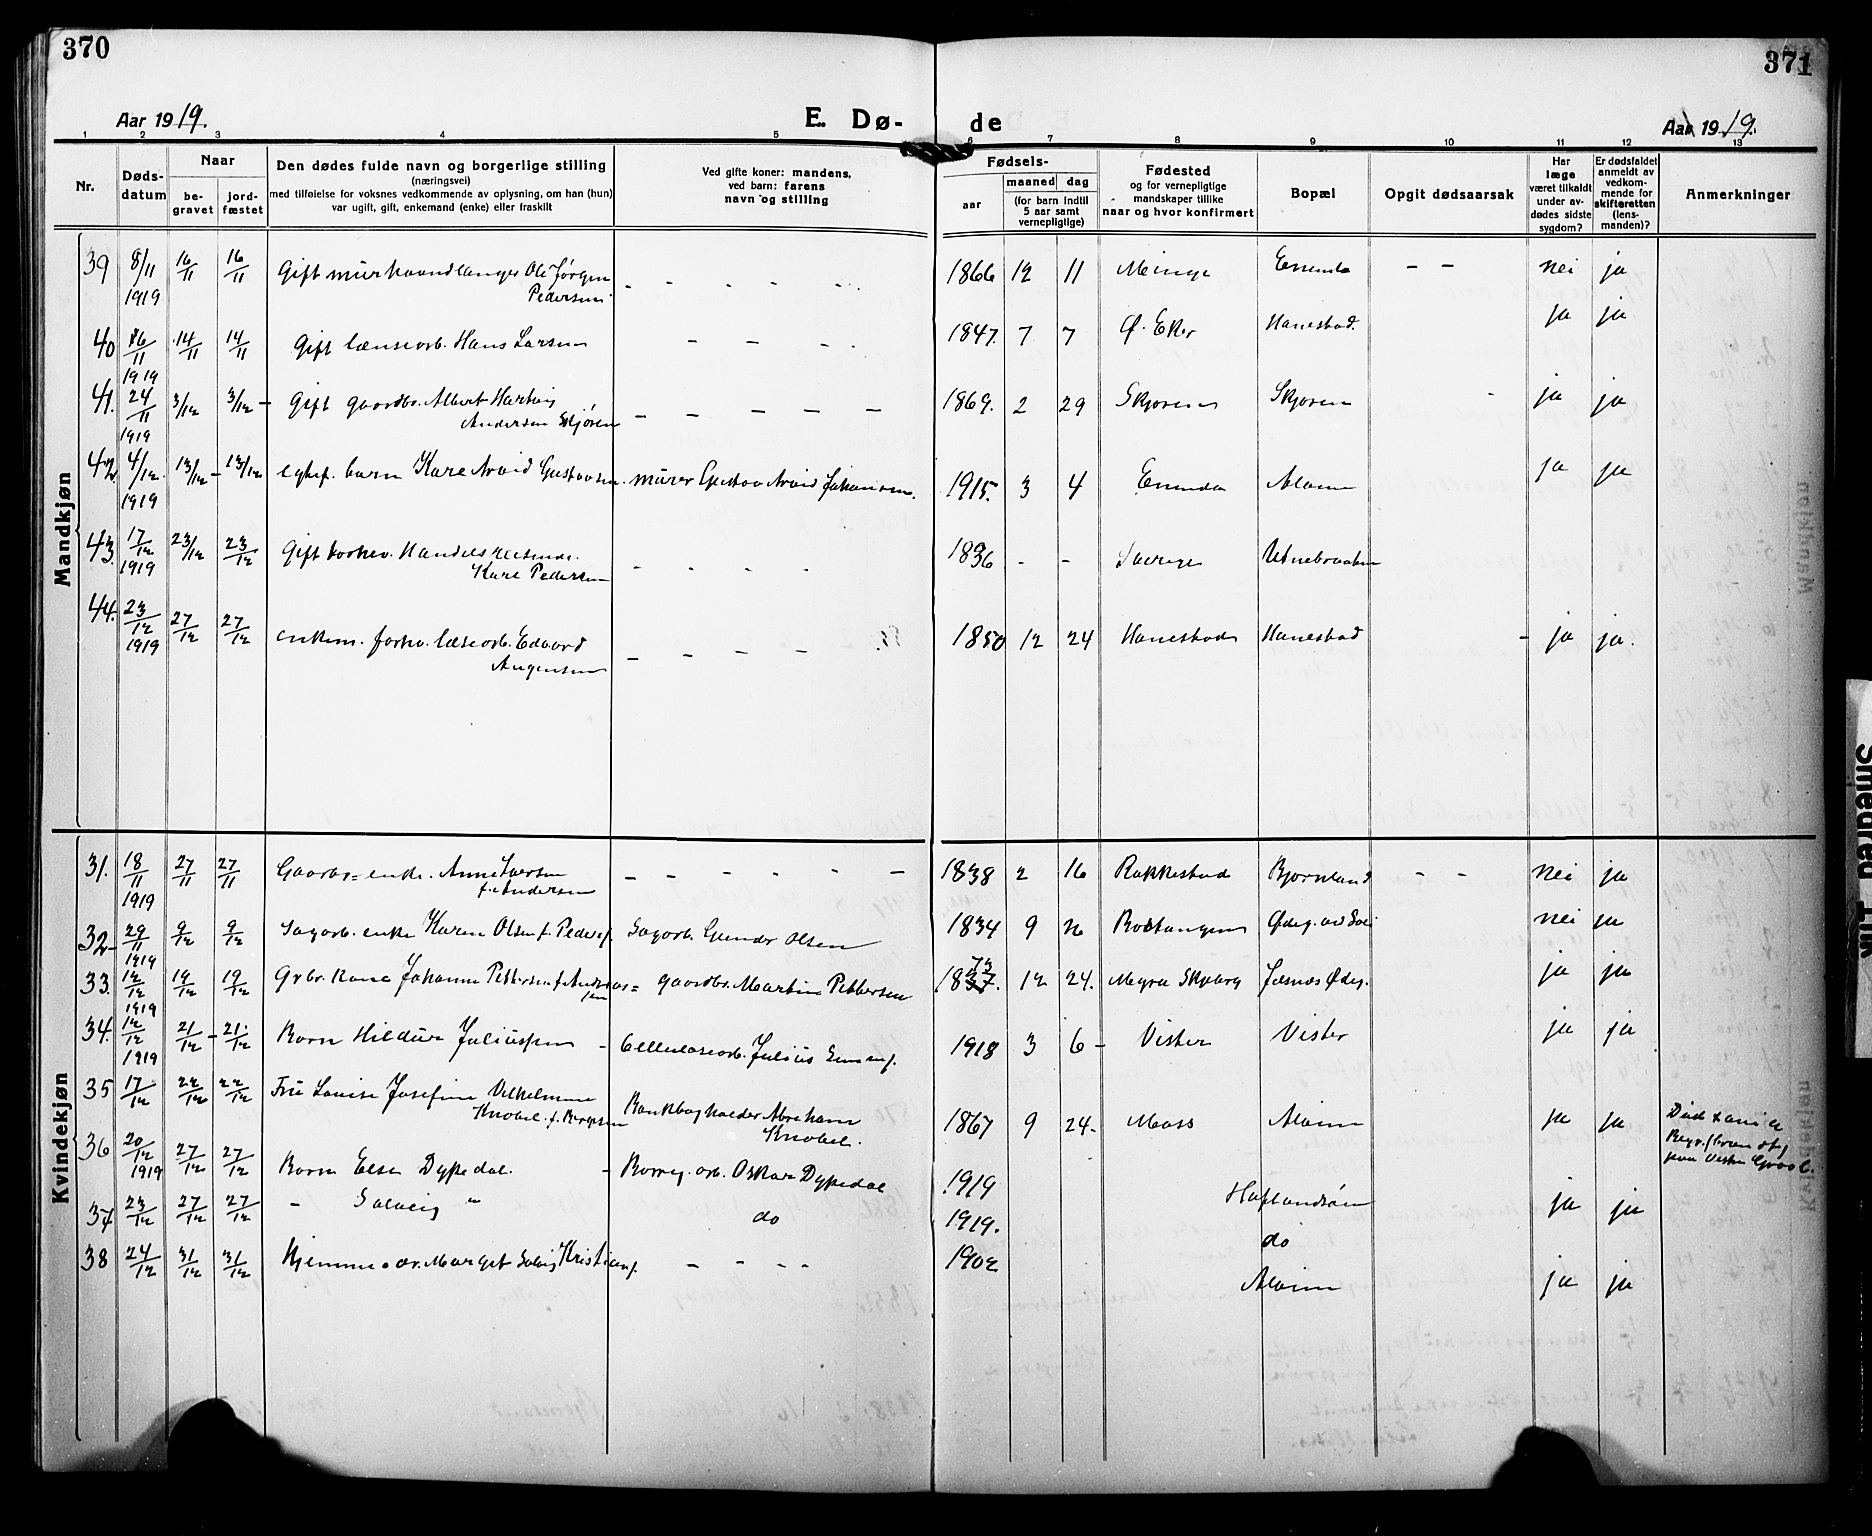 370
371
Aar 1919.
E. Dø-
de
Aar 1919.
1 2 3 4 5 6 7 8 9 10 11 12 13
Nr.
Døds-
datum
Naar
be-
gravet
jord-
fæstet
Den dødes fulde navn og borgerlige stilling
(næringsvei)
med tilføielse for voksnes vedkommende av oplysning, om han (hun)
var ugift, gift, enkemand (enke) eller fraskilt
Ved gifte koner: mandens,
ved barn: farens
navn og stilling
Fødsels-
aar
maaned dag
(for barn indtil
5 aar samt
vernepligtige)
Fødested
og for vernepligtige
mandskaper tillike
naar og hvor konfirmert
Bopæl
Opgit dødsaarsak
Har
læge
været tilkaldt
under av-
dødes sidste
sygdom?
Er dødsfaldet
anmeldt av
vedkom-
mende for
skifteretten
(lens-
manden)?
Anmerkninger
Mandkjøn
39 8/11 1919 16/11 16/11 Gift murhaandlanger Ole Jørgen
Pedersen - - - - - 1866 12 11 Minge - - nei ja
40 11 1919 14/11 14/11 Gift lænsearb. Hans Larsen - - - - 1847. 7 7 Ø. Eker Hanestad. ja ja
41. 24/11 1919 3/12 3/12 - Gift gaardbr. Albert Hartvig
Andersen Skjøren - - - - - 1869. 2 29 Skjøren Skjøren - ja ja
42. 4/12. 1919 13/12 - 13/12 egtef. barn Kare Arvid Gustavsen. murer Gustav Arvid Johansen. 1915. 3 4 Alvim ja ja
43. 17/12 1919 23/12 23/12 Gift forhv. Handelsreisende.
Kare Pedersen - - - - 1836 - - Sverige
44. 23/12 1919 27/12 27/12 enkem. forhv. læsearb. Edvard
Augensen - - - - 1850 12 24 Hanestad Hanestad - ja ja.
Kvindekjøn
31. 18/11 1919 27/11 27/11 Gaarbr=enke. Anne Iversen
f. Andersen - - - - - - 1838 2 16 Rakkestad Bjørnland - - nei ja
32 - 29/11 1919 9/12 9/12 Sagarb. enke Karen Olsen f. Peders. Sagarb. Gunder Olsen 1834 9 Ødeg. nei ja
33. 12/12 1919 19/12 19/12 Grbr. kone Johanne Pettersen f. Andreas=
sen gaardbr. Martin Pettersen 1837. 73 12 24. Skjeberg Ødeg. ja ja
34. 12/12 1919 21/12 - 21/12 Barn Hildur Juliussen - Cellulosearb. Julius 1918 3 6 - Vister Vister ja ja
35 17/12 22/12 22/12 Fru Louise Josefine Vilhelmine
Knobel f. Bankbogholder Abraham
Knobel. 1867 9 24 - Moss Alvim ja ja
36 20/12 1919 27/12 27/12 Barn Elsa Dypedal. - Borreg. arb. Oskar Dypedal 1919 Haflandsøen ja ja
37 23/12 27/12 27/12 - Solveig " do 1919. do
38 24/12 31/12 31/12 Margit Solvig Kristians. - - - - 1902 Alvim ja ja
Smedrød 1 rik